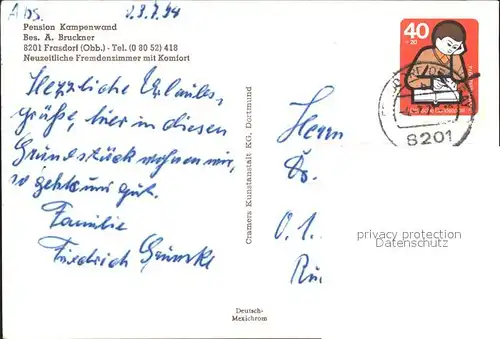 Abs. 23.7.74
Pension Kampenwand
Bes. A. Bruckner
8201 Frasdorf (Obb.) - Tel. (0 80 52) 418
Neuzeitliche Fremdenzimmer mit Komfort
Herzliche Urlaubs,
grüße, hier in diesen
Grundstück wohnen wir,
so gehts uns gut.
Familie
Friedrich
Cramers Kunstanstalt KG, Dortmund
Deutsch-
Mexichrom
40
+20
8201
Herrn
O. 1.
privacy protection
Datenschutz